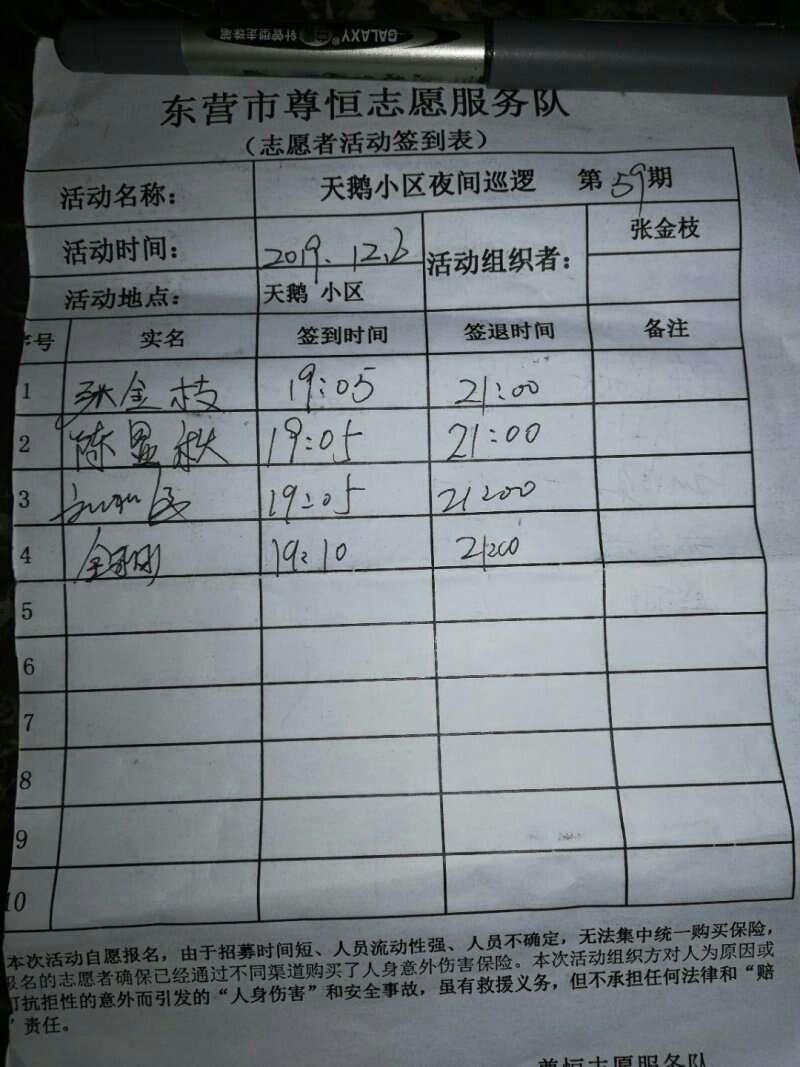 GALAXY 针管型走珠笔
东营市尊恒志愿服务队
（志愿者活动签到表）
活动名称： 天鹅小区夜间巡逻 第59期
活动时间： 2019.12.3 活动组织者： 张金枝
活动地点： 天鹅 小区
序号 实名 签到时间 签退时间 备注
1 张金枝 19:05 21:00
2 陈显秋 19:05 21:00
3 19:05 21:00
4 19:10 21:00
5
6
7
8
9
10
本次活动自愿报名，由于招募时间短、人员流动性强、人员不确定，无法集中统一购买保险，
报名的志愿者确保已经通过不同渠道购买了人身意外伤害保险。本次活动组织方对人为原因或
可抗拒性的意外而引发的“人身伤害”和安全事故，虽有救援义务，但不承担任何法律和“赔
”责任。
尊恒志愿服务队